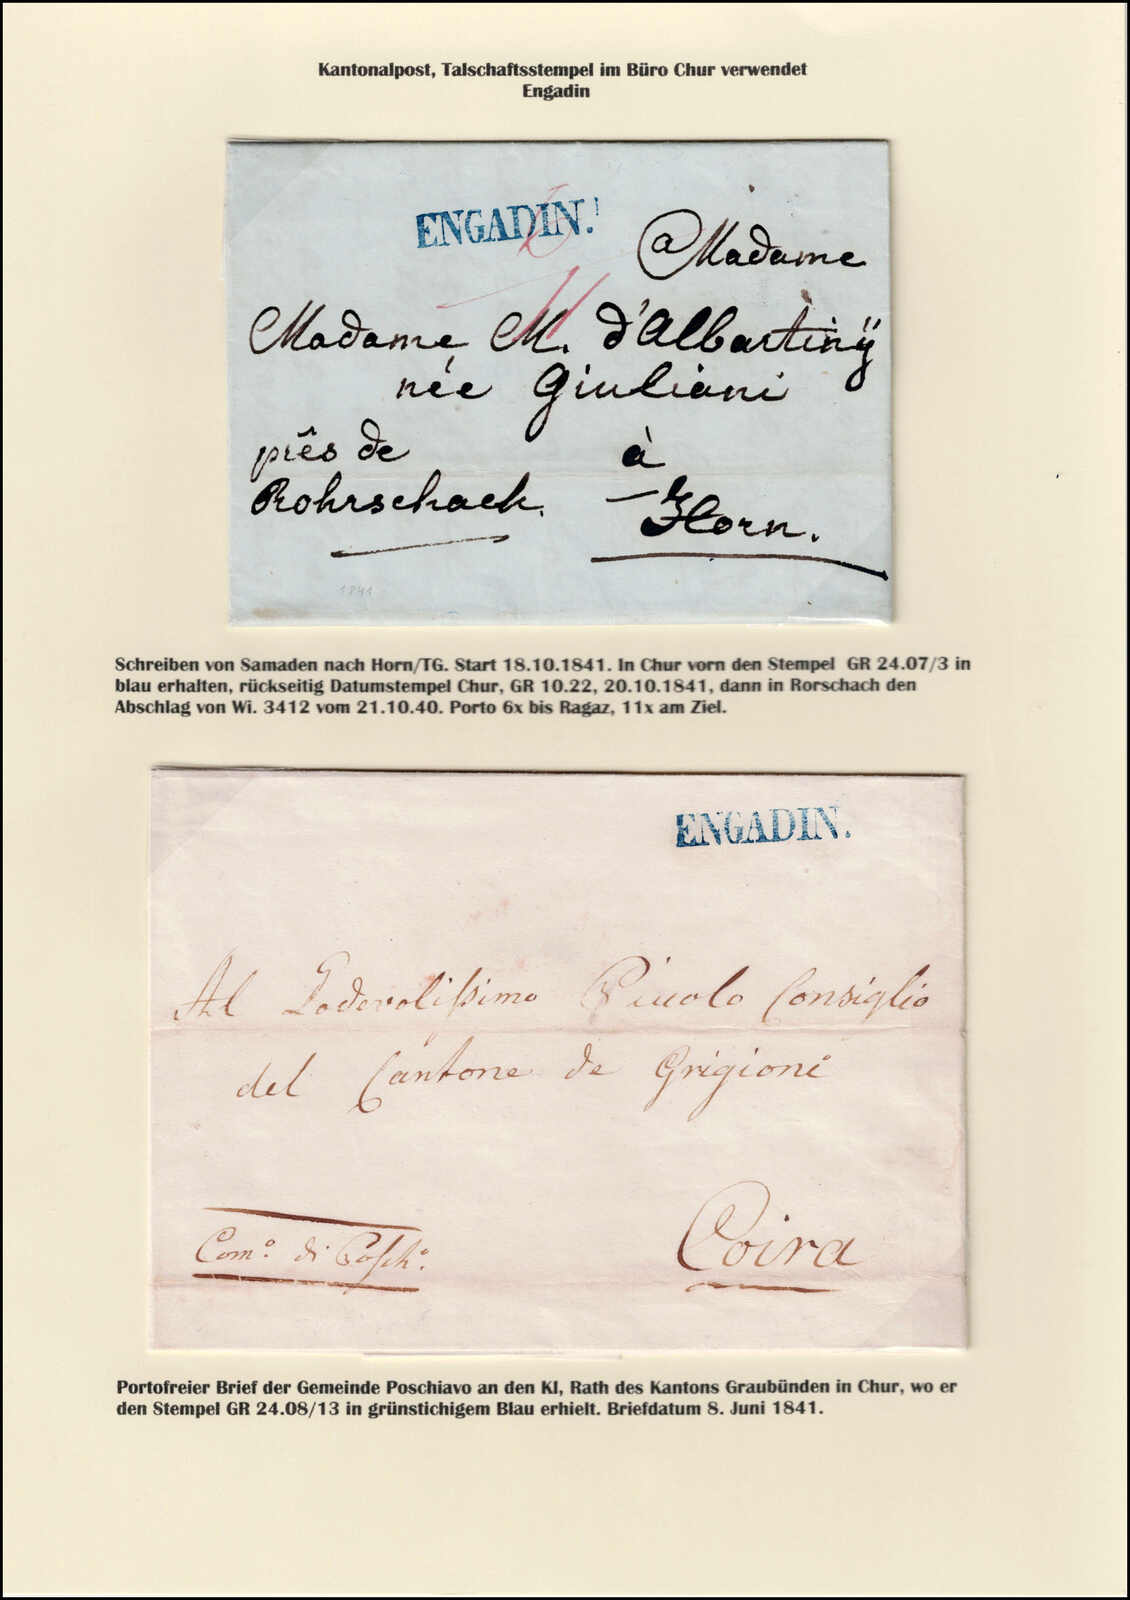 Kantonalpost, Talschaftsstempel im Büro Chur verwendet
Engadin
ENGADIN.
6
a Madame
11
Madame M. d'Albertinÿ
née Giuliani
près de à
Rohrschach. Horn.
1841
Schreiben von Samaden nach Horn/TG. Start 18.10.1841. In Chur vorn den Stempel GR 24.07/3 in
blau erhalten, rückseitig Datumstempel Chur, GR 10.22, 20.10.1841, dann in Rorschach den
Abschlag von Wi. 3412 vom 21.10.40. Porto 6x bis Ragaz, 11x am Ziel.
ENGADIN.
Al Lodevolissimo Piccolo Consiglio
del Cantone de Grigioni
Com.º di Posch.º Coira
Portofreier Brief der Gemeinde Poschiavo an den Kl, Rath des Kantons Graubünden in Chur, wo er
den Stempel GR 24.08/13 in grünstichigem Blau erhielt. Briefdatum 8. Juni 1841.